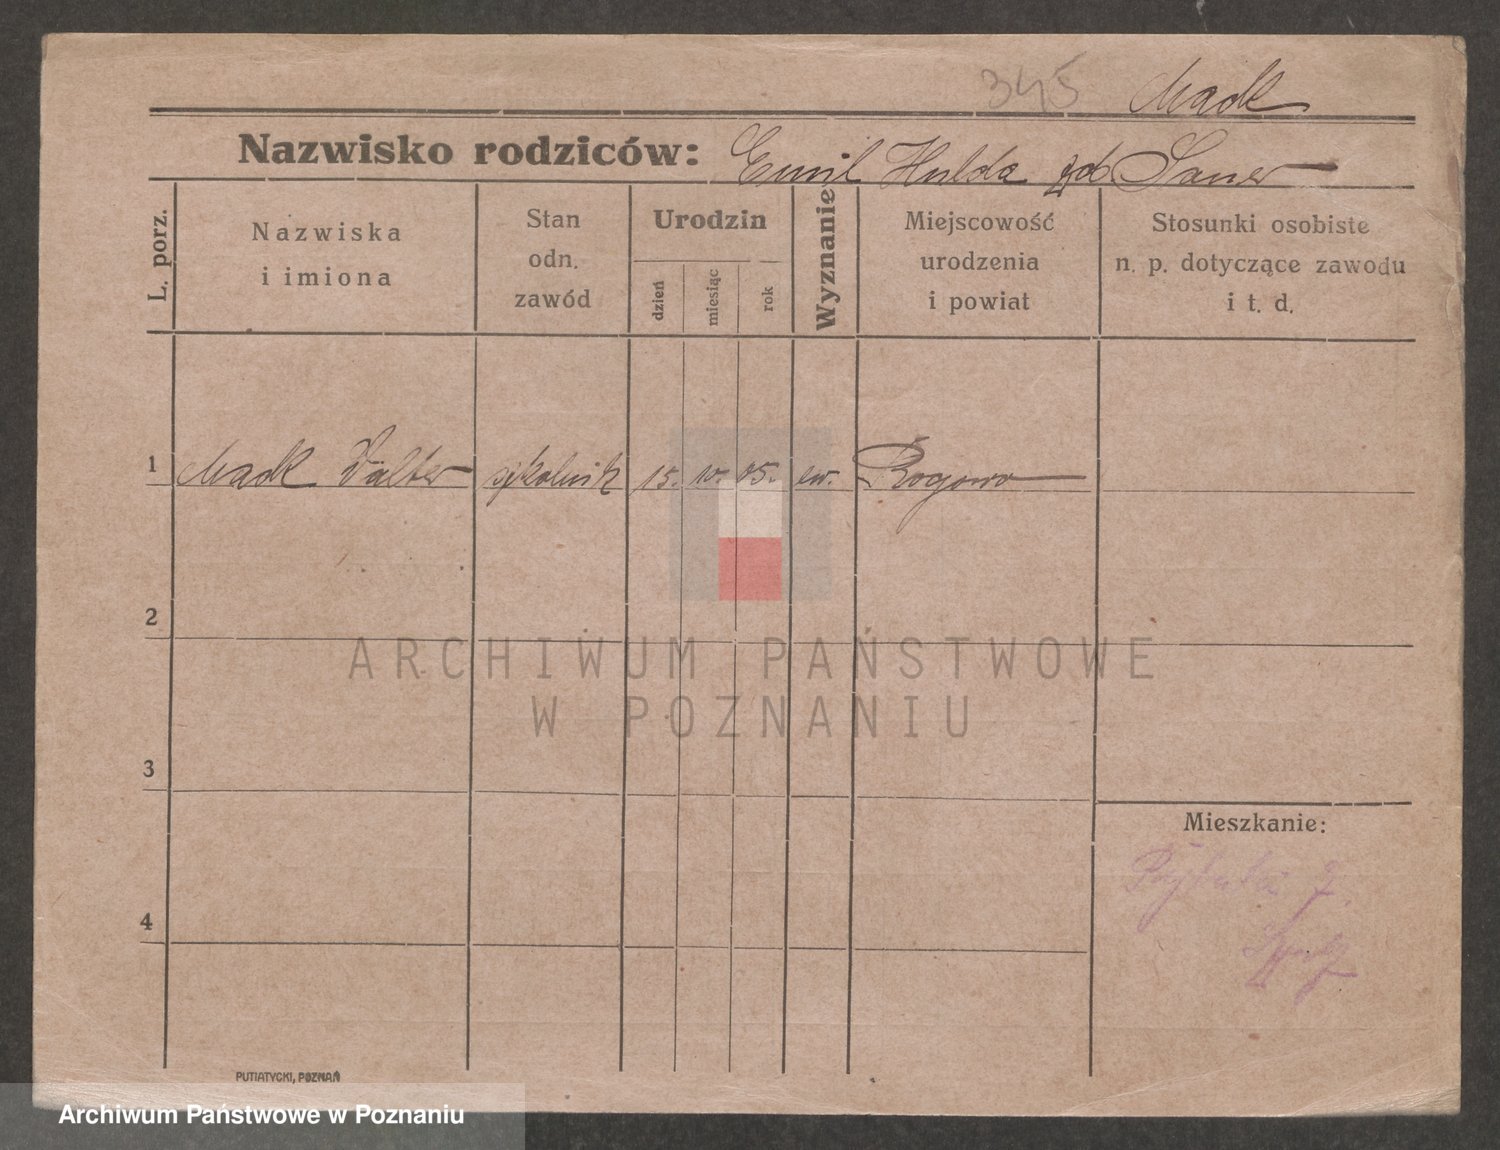 345 Madk
Nazwisko rodziców: Emil Hulda zd Sauer
L. porz.
Nazwiska
i imiona
Stan
odn.
zawód
Urodzin
dzień
miesiąc
rok
Wyznanie
Miejscowość
urodzenia
i powiat
Stosunki osobiste
n. p. dotyczące zawodu
i t. d.
1 Madk Walter szkolnik 15. 10. 05. ew. Rogowo
2
3
Mieszkanie:
4
PUTIATYCKI, POZNAŃ
ARCHIWUM PAŃSTWOWE
W POZNANIU
Archiwum Państwowe w Poznaniu